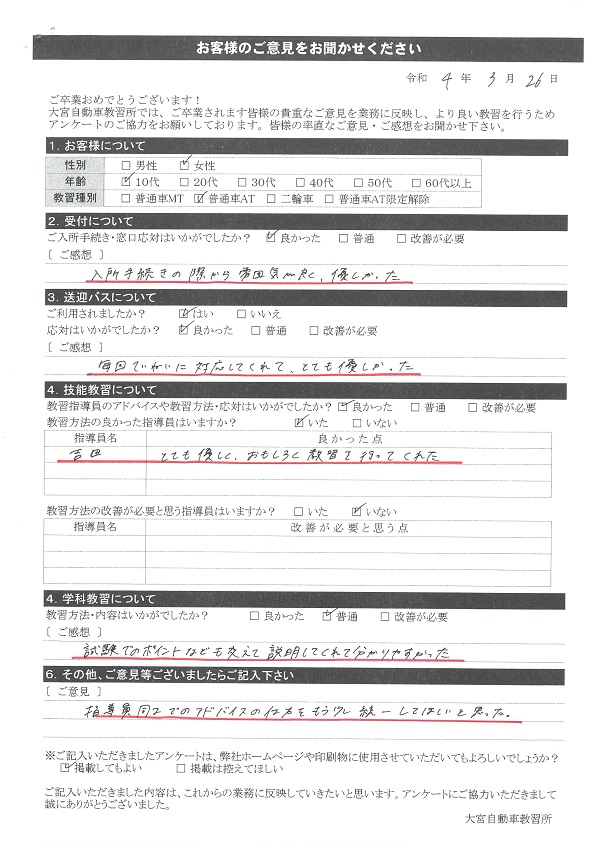 お客様のご意見をお聞かせください
令和 4 年 3 月 26 日
ご卒業おめでとうございます！
大宮自動車教習所では、ご卒業されます皆様の貴重なご意見を業務に反映し、より良い教習を行うため
アンケートのご協力をお願いしております。皆様の率直なご意見・ご感想をお聞かせ下さい。
1. お客様について
性別 □ 男性 ☑ 女性
年齢 ☑ 10代 □ 20代 □ 30代 □ 40代 □ 50代 □ 60代以上
教習種別 □ 普通車MT ☑ 普通車AT □ 二輪車 □ 普通車AT限定解除
2. 受付について
ご入所手続き・窓口応対はいかがでしたか？ ☑ 良かった □ 普通 □ 改善が必要
［ ご感想 ］
入所手続きの際から雰囲気が良く、優しかった
3. 送迎バスについて
ご利用されましたか？ ☑ はい □ いいえ
応対はいかがでしたか？ ☑ 良かった □ 普通 □ 改善が必要
［ ご感想 ］
毎回ていねいに対応してくれて、とても優しかった
4. 技能教習について
教習指導員のアドバイスや教習方法・応対はいかがでしたか？ ☑ 良かった □ 普通 □ 改善が必要
教習方法の良かった指導員はいますか？ ☑ いた □ いない
指導員名 良かった点
吉田 とても優しく、おもしろく教習を行ってくれた
教習方法の改善が必要と思う指導員はいますか？ □ いた ☑ いない
指導員名 改善が必要と思う点
4. 学科教習について
教習方法・内容はいかがでしたか？ □ 良かった ☑ 普通 □ 改善が必要
［ ご感想 ］
試験でのポイントなども交えて説明してくれて分かりやすかった
6. その他、ご意見等ございましたらご記入下さい
［ ご意見 ］
指導員同士でのアドバイスの仕方をもう少し統一してほしいと思った。
※ご記入いただきましたアンケートは、弊社ホームページや印刷物に使用させていただいてもよろしいでしょうか？
☑ 掲載してもよい □ 掲載は控えてほしい
ご記入いただきました内容は、これからの業務に反映していきたいと思います。アンケートにご協力いただきまして
誠にありがとうございました。
大宮自動車教習所